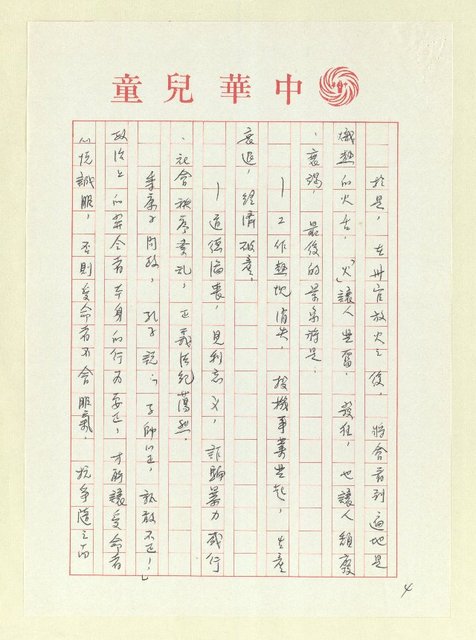 中華兒童
於是，在州官放火之後，將會看到遍地是
熾熱的火舌，「火」讓人興奮，發狂，也讓人頹廢
、衰竭，最後的景象將是。
—工作熱忱消失，投機事業興起，生產
衰退，經濟破產。
—道德淪喪，見利忘义，詐騙暴力盛行
，社会秩序紊乱，正義法紀蕩然。
季康子问政，孔子說：「子帥以正，孰敢不正！」
政治上的发令者本身的行为要正，才能讓受命者
心悅誠服，否則受命者不会服氣，抗争隨之而
4